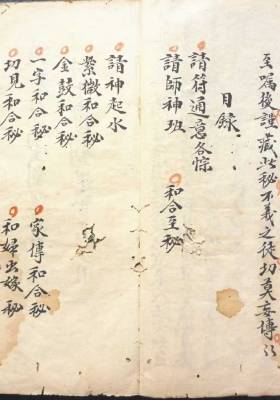 至嘱後誰藏此秘不義之徒切莫妄傳
目録
請符通意各
請師神班
和合至秘
請神起水
紫微和合秘
金鼓和合秘
一字和合秘
家傳和合秘
切見和合秘
和婦出嫁秘